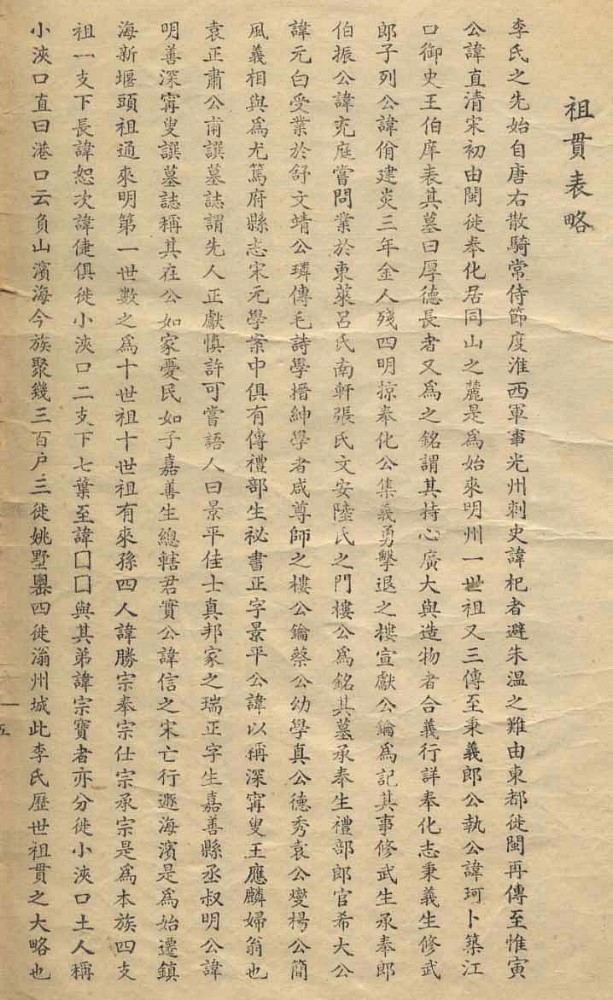 祖貫表略
李氏之先始自唐右散騎常侍節度淮西軍事光州刺史諱杞者避朱温之難由東都徙閩再傳至惟寅
公諱直清宋初由閩徙奉化居同山之麓是爲始來明州一世祖又三傳至秉義郎公執公諱珂卜築江
口御史王伯庠表其墓曰厚德長者又爲之銘謂其持心廣大與造物者合義行詳奉化志秉義生修武
郎子列公諱佾建炎三年金人殘四明掠奉化公集義勇擊退之樓宣獻公鑰爲記其事修武生承奉郎
伯振公諱充庭嘗問業於東萊呂氏南軒張氏文安陸氏之門樓公爲銘其墓承奉生禮部郎官希大公
諱元白受業於舒文靖公璘傳毛詩學搢紳學者咸尊師之樓公鑰蔡公幼學真公德秀袁公燮楊公簡
風義相與爲尤篤府縣志宋元學案中俱有傳禮部生祕書正字景平公諱以稱深甯叟王應麟婦翁也
袁正肅公甫譔墓誌謂先人正獻慎許可嘗語人曰景平佳士真邦家之瑞正字生嘉善縣丞叔明公諱
明善深甯叟譔墓誌稱其在公如家憂民如子嘉善生總轄君實公諱信之宋亡行遯海濱是爲始遷鎮
海新堰頭祖通來明第一世數之爲十世祖十世祖有來孫四人諱勝宗奉宗仕宗承宗是爲本族四支
祖一支下長諱恕次諱倢俱徙小浹口二支下七葉至諱囗囗與其弟諱宗寶者亦分徙小浹口土人稱
小浹口直曰港口云負山濱海今族聚幾三百户三徙姚墅嶴四徙滃州城此李氏歷世祖貫之大略也
一五